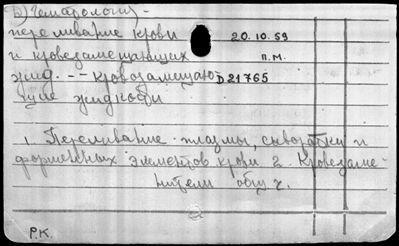 Б) Гематология -
переливание крови
20.10.59
и кровезамещающих
п.м.
жид. -- Кровозамещаю
D21765
щие жидкости
1. Переливание плазмы, сыворотки и
форменных элементов крови 2. Кровезаме-
нители общ. ч.
Р.К.